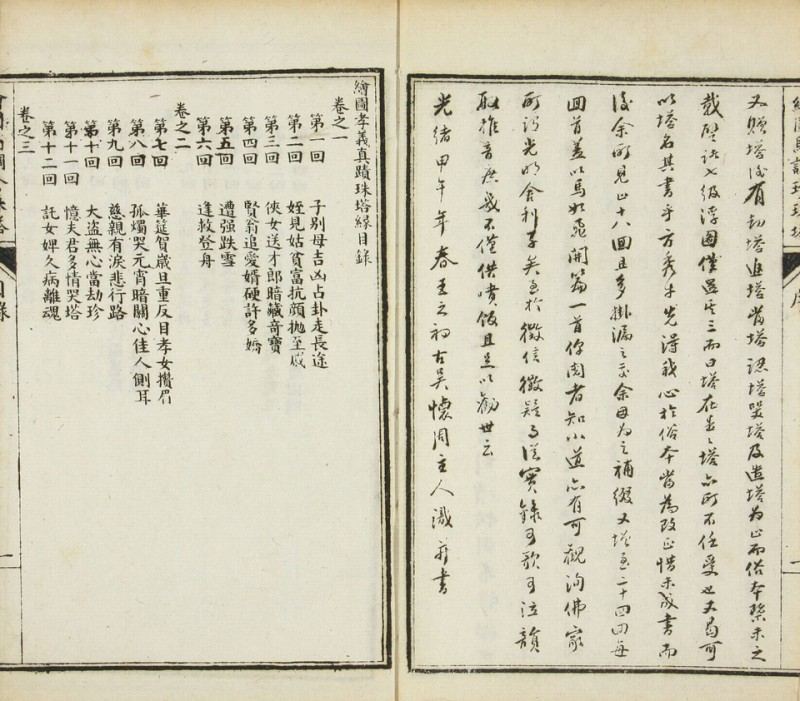 又贖塔後有劫塔追塔當塔認塔哭塔及造塔為止而俗本槩未之
載譬諸七級浮圖僅造其三而曰塔在是塔亦所不任受也又曷可
以塔名其書乎方秀才先得我心於俗本嘗為改正惜未成書而
後余所見止十八回且多掛漏之文余因為之補綴又增至二十四回每
回首蓋以馬如飛開篇一首俾閱者知小道亦有可觀洵佛家
所謂光明舍利子矣至於徵信徵疑事從實錄可歌可泣韻
取推音庶幾不僅供噴飯且足以勸世云
光緒甲午年春王之初古吳懷周主人識并書
繪圖孝義真蹟珠塔緣目錄
卷之一
第一回 子別母吉凶占卦走長途
第二回 姪見姑貧富抗顏拋至慼
第三回 俠女送才郎暗藏奇寶
第四回 賢翁追愛婿硬許多嬌
第五回 遭強跌雪
第六回 逢救登舟
卷之二
第七回 華筵賀歲旦重反目孝女攢眉
第八回 孤燭哭元宵暗關心佳人側耳
第九回 慈親有淚悲行路
第十回 大盜無心當劫珍
第十一回 憶夫君多情哭塔
第十二回 託女婢久病離魂
卷之三